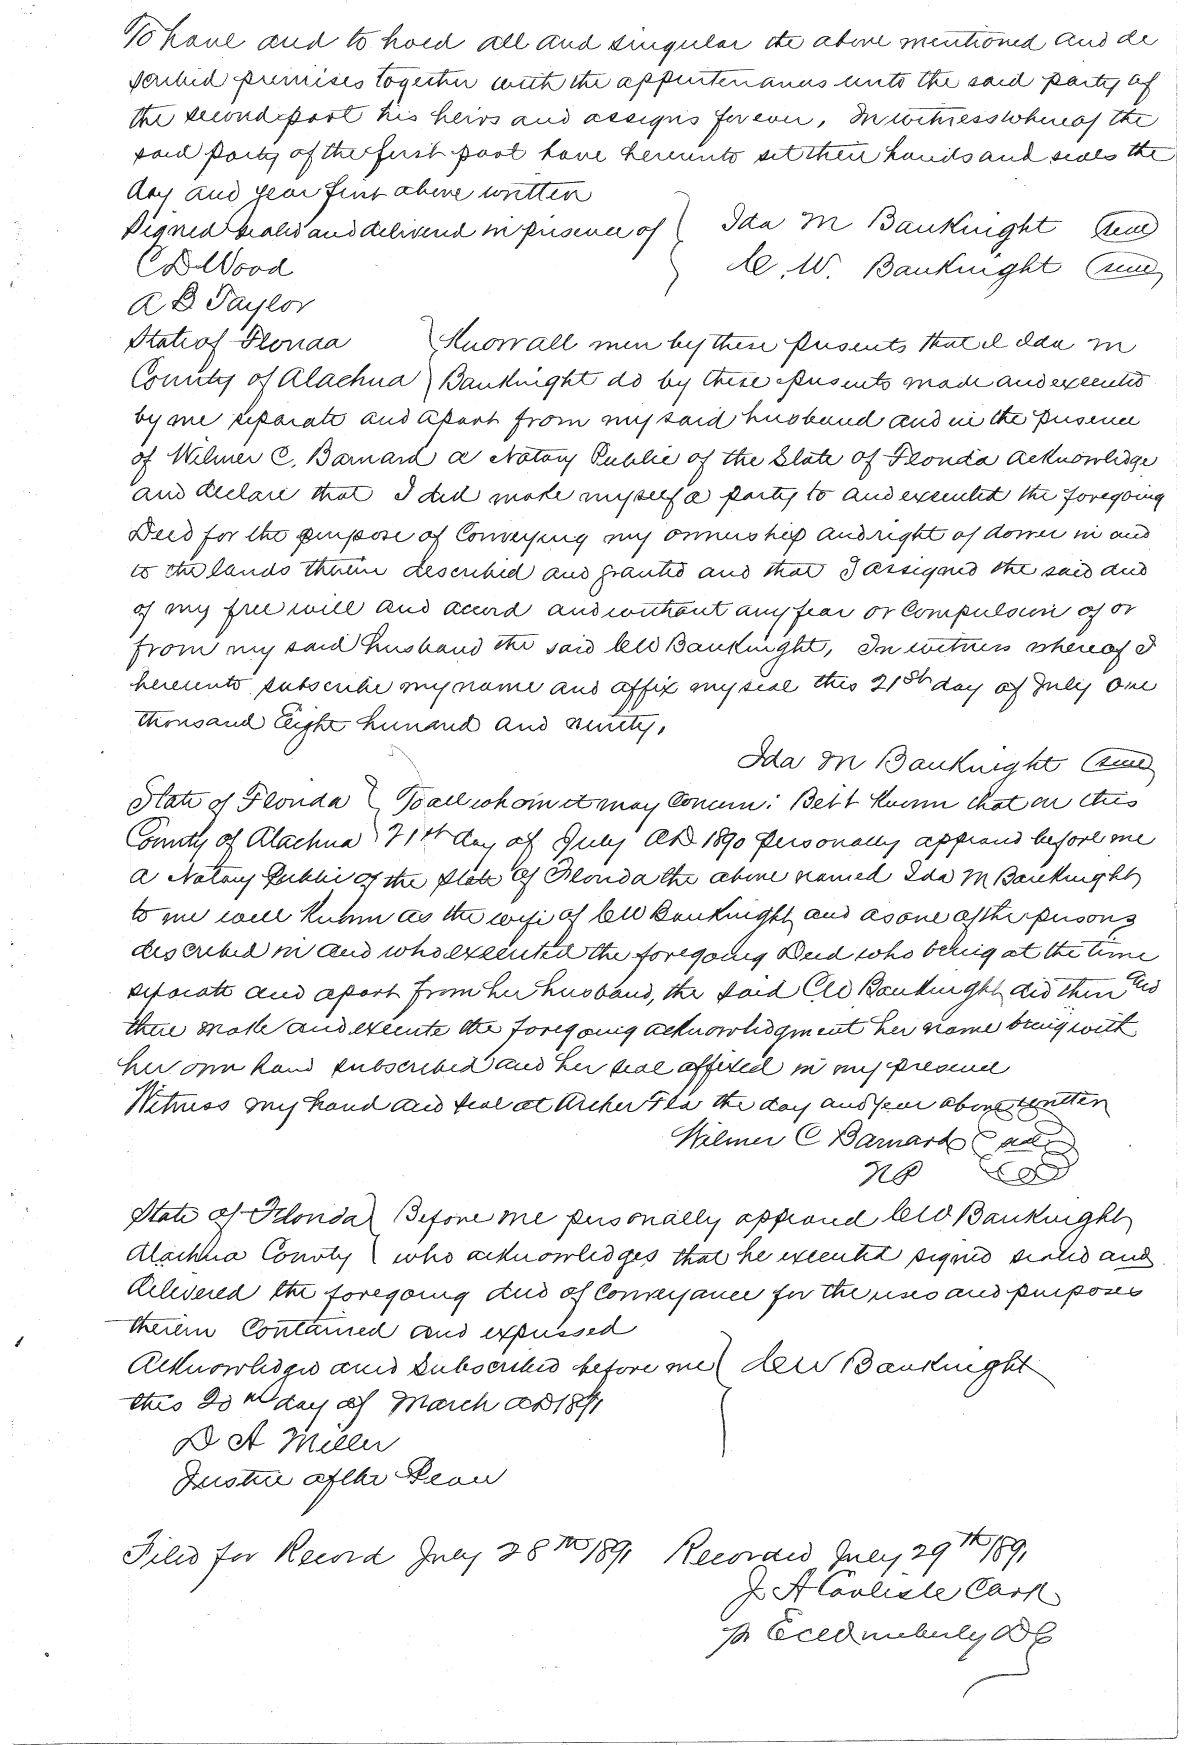 To have and to hold all and singular the above mentioned and de
scribed premises together with the appurtenances unto the said party of
the second part his heirs and assigns forever, In witness whereof the
said party of the first part have hereunto set their hands and seals the
day and year first above written
Signed sealed and delivered in presence of } Ida M Bauknight (seal)
C D Wood } C. W. Bauknight (seal)
A B Taylor
State of Florida } Know all men by these presents that I Ida M
County of Alachua } Bauknight do by these presents made and executed
by me separate and apart from my said husband and in the presence
of Wilmer C. Barnard a Notary Public of the State of Florida acknowledge
and declare that I did make myself a party to and executed the foregoing
Deed for the purpose of Conveying my ownership and right of dower in and
to the lands therein described and granted and that I assigned the said deed
of my free will and accord and without any fear or Compulsion of or
from my said husband the said C W Bauknight, In witness whereof I
hereunto subscribe my name and affix my seal this 21st day of July One
thousand Eight hundred and ninety,
Ida M Bauknight (seal)
State of Florida } To all whom it may Concern: Be it Known that on this
County of Alachua } 21st day of July AD 1890 personally appeared before me
a Notary Public of the State of Florida the above named Ida M Bauknight
to me well Known as the wife of C W Bauknight and as one of the persons
described in and who executed the foregoing Deed who being at the time
separate and apart from her husband, the said C W Bauknight did then and
there make and execute the foregoing acknowledgment her name being with
her own hand subscribed and her seal affixed in my presence
Witness my hand and seal at Archer Fla the day and year above written
Wilmer C Barnard (seal)
NP
State of Florida } Before me personally appeared C W Bauknight
Alachua County } who acknowledges that he executed signed sealed and
delivered the foregoing deed of Conveyance for the uses and purposes
therein Contained and expressed
Acknowledged and Subscribed before me } C W Bauknight
this 20th day of March AD 1891
D A Miller
Justice of the Peace
Filed for Record July 28th 1891 Recorded July 29th 1891
J A Carlisle Clerk
pr DC